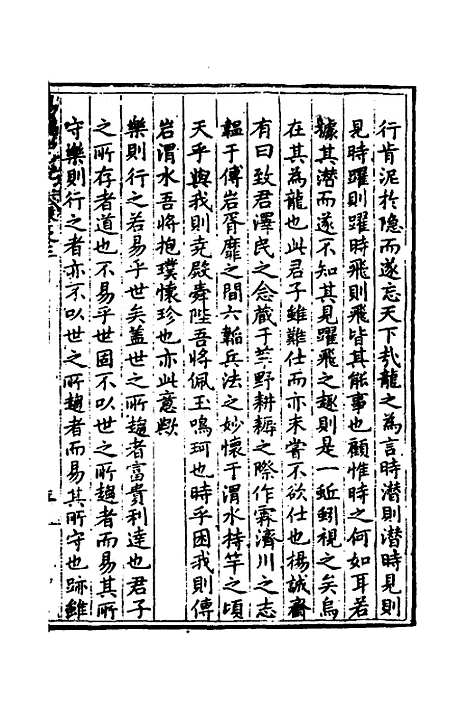 行肯泥於隐而遂忘天下㢤龍之為言時潜則潜時見則
見時躍則躍時飛則飛皆其能事也顧惟時之何如耳若
據其潜而遂不知其見躍飛之趣則是一蚯蚓視之矣烏
在其為龍也此君子雖難仕而亦未嘗不欲仕也楊誠齋
有曰致君澤民之念蔵于莘野耕耨之際作霖濟川之志
韞于傅岩胥靡之間六韜兵法之妙懷于渭水持竿之頃
天乎與我則尭殿舜陛吾將佩玉鳴珂也時乎困我則傅
岩渭水吾將抱璞懷珍也亦此意歟
樂則行之若易乎世矣盖世之所趨者富貴利達也君子
之所存者道也不易乎世固不以世之所趨者而易其所
守樂則行之者亦不以世之所趨者而易其所守也跡雖